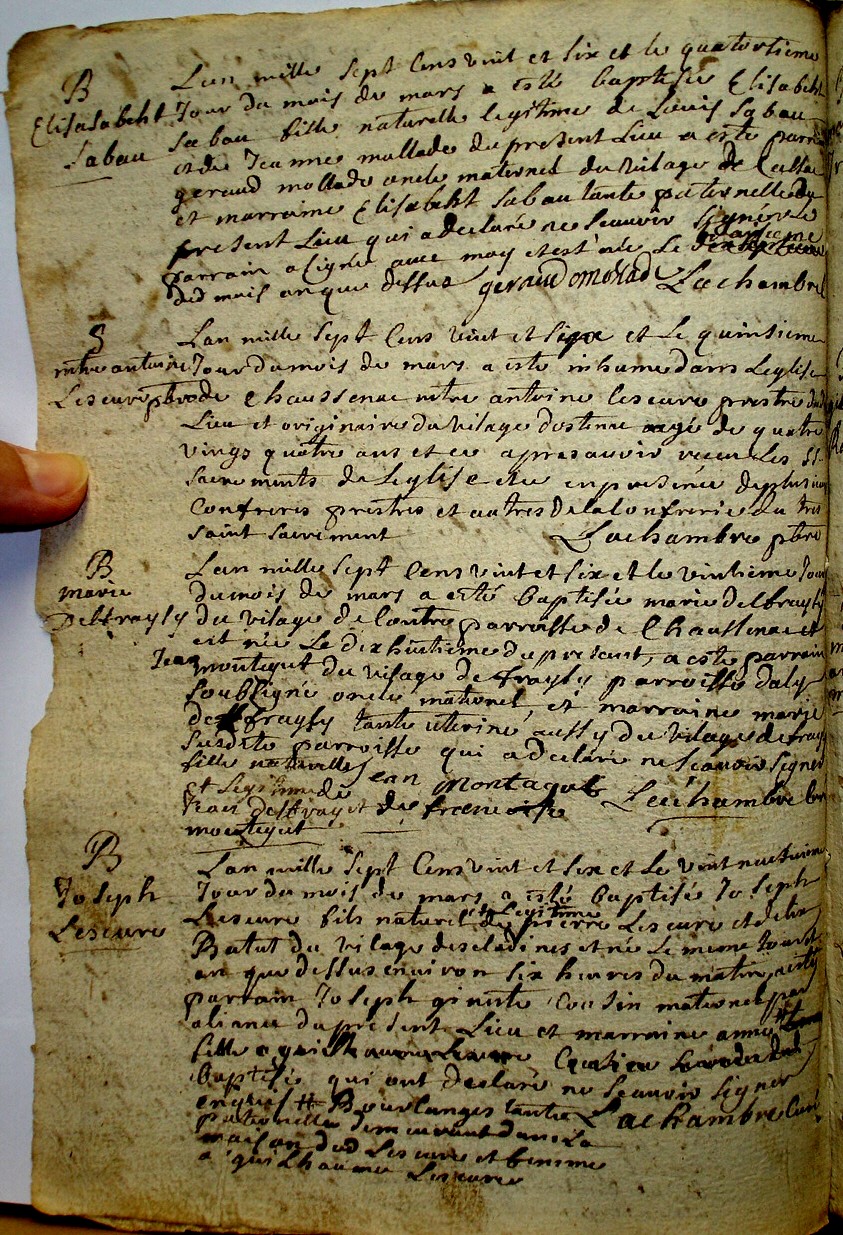 B
Elisasabeht
Sabau
Lan mille sept Cens vint et six et le quatorsieme
Jour du mois de mars a esté baptisée Elisabeht
Sabau fille naturelle legitime de Louis Sabau
et de Jeanne mollade du present Lieu a esté parrain
geraud mollade oncle maternel du vilage de
et marraine Elisabeht Sabau tante paternelle du
present Lieu qui a declaré ne scauoir signér Le
parrain a signé auec moy et est née Le
dud mois an que dessus geraud mollade Lachambre
S
mtre antoine
Lescure pbre
Lan mille sept Cens vint et six et Le quinsieme
Jour du mois de mars a esté inhumé dans Leglise
de Chaussenac mtre antoine Lescure prestre dud
Lieu et originaire du vilage dostenac agé de quatre
vings quatre ans et ce apres auoir receu Les SS.
Sacrements de Leglise et ce en presence de plusieurs
Confreres prestres et autres de la Confrerie du tres
saint sacrement Lachambre pbre
B
marie
Delfraysy
Lan mille sept Cens vint et six et le vintieme Jour
du mois de mars a esté baptisée marie delfraysy
du vilage de Contre parroisse de Chaussenac et
est née Le dix huitieme du present, a esté parrain
Jean montegut du vilage de fraysy parroisse daly
soubsigné oncle maternel, et marraine marie
delfraysy tante uterine aussy du vilage de frays
susdite parroisse qui a declaré ne scauoir signer
fille naturelle Jean Montagut Lachambre
et legitime de
Jean delfraysy et de francoise
montegut
B
Joseph
Lescure
Lan mille sept Cens vint et six et Le vint
Jour du mois de mars a esté baptisé Joseph
Lescure fils naturel et Legitime de pierre Lescure et de
Batut du vilage descledines et né Le meme Jour et
an que dessus enuiron six heures du matin, a esté
parrain Joseph ginioute Cousin maternel par
aliance du present Lieu et marraine anne
fille a guilhaume Lescure
baptisé qui ont declaré ne scauoir signer
enquis # Boulanges tante Lachambre Curé
paternelle demeurant dans La
maison dud Lescure et
a guilhaume Lescure